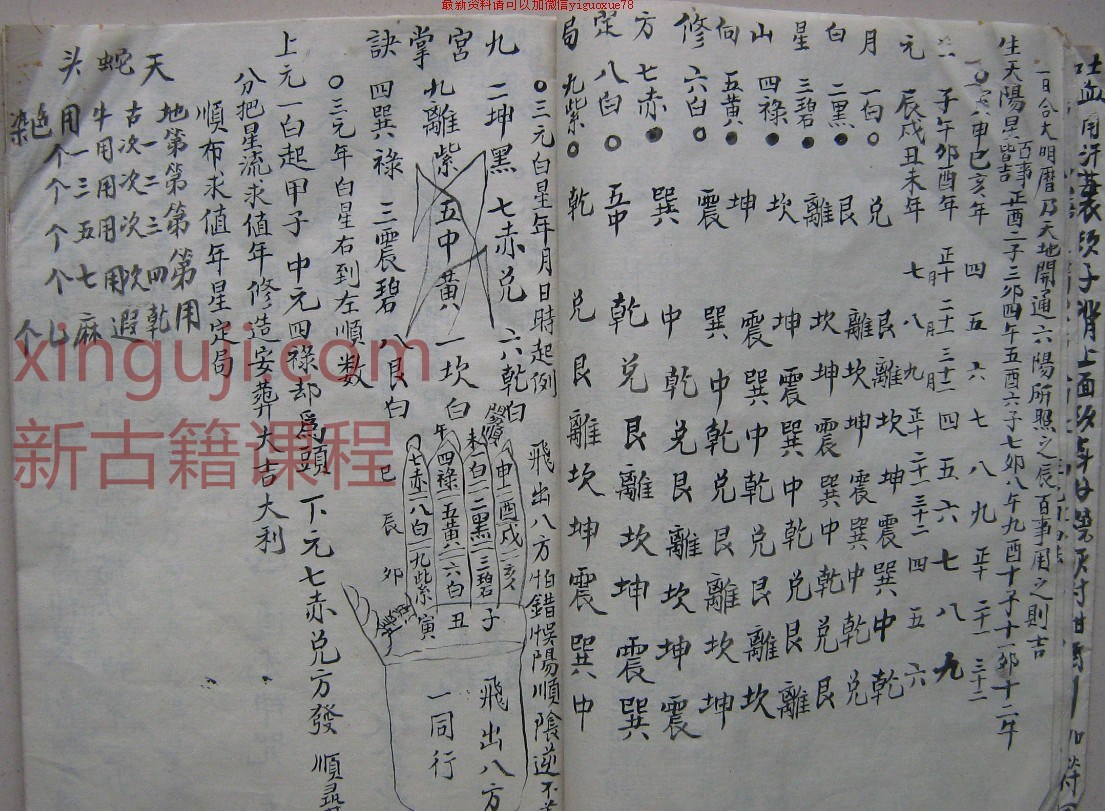 最新资料请可以加微信yiguoxue78
一百合大明曆乃天地開通六陽所照之辰百事用之則吉
百事
正酉二子三卯四午五酉六子七卯八午九酉十子十一卯十二午
寅申巳亥年 四 五 六 七 八 九 正十 二十一 三十二
三 子午卯酉年 正十月 二十一月 三十二月 四 五 六 七 八 九
元 辰戌丑未年 七 八 九 正十 二十一 三十二 四 五 六
月 一白○ 兌 艮 離 坎 坤 震 巽 中 乾
白 二黑● 艮 離 坎 坤 震 巽 中 乾 兌
星 三碧● 離 坎 坤 震 巽 中 乾 兌 艮
山 四祿● 坎 坤 震 巽 中 乾 兌 艮 離
向 五黃● 坤 震 巽 中 乾 兌 艮 離 坎
修 六白○ 震 巽 中 乾 兌 艮 離 坎 坤
方 七赤● 巽 中 乾 兌 艮 離 坎 坤 震
定 八白○ 五中 乾 兌 艮 離 坎 坤 震 巽
局 九紫○ 乾 兌 艮 離 坎 坤 震 巽 中
○三元白星年月日時起例 飛出八方怕錯悞陽順陰逆不
九 二坤黑 七赤兌 六乾白
宮 九離紫 五中黃 一坎白
掌 四巽祿 三震碧 八艮白
訣
申 酉 戌 亥
未 一白 二黑 三碧 子
午 四祿 五黃 六白 丑
七赤 八白 九紫 寅
巳 辰 卯
飛出八方
一同行
○三元年白星右到左順数
上元一白起甲子 中元四祿却為頭 下元七赤兌方發 順尋
分把星流求值年修造安葬大吉大利
順布求值年星定局
天 地第第第第用
古一二三四乾
蛇 次次次次遐
牛用用用用麻
头 一三五七
用个个个个七个
染色
xinguji.com
新古籍课程